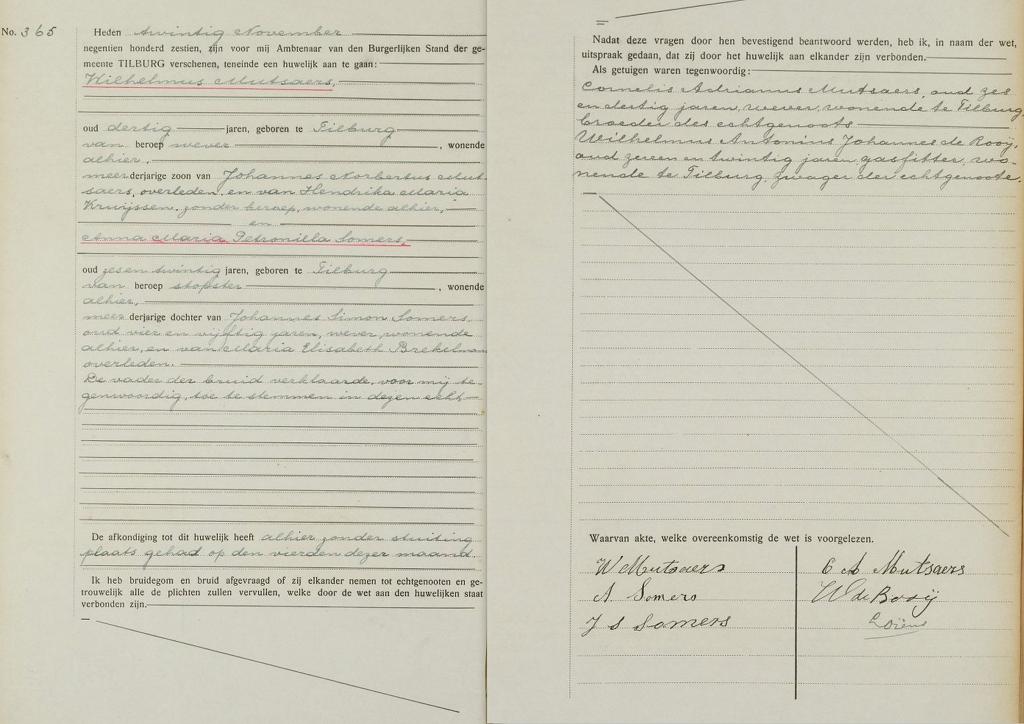 No. 365
Heden twintig November
negentien honderd zestien, zijn voor mij Ambtenaar van den Burgerlijken Stand der ge-
meente TILBURG verschenen, teneinde een huwelijk aan te gaan:
Wilhelmus Mutsaers,
oud dertig jaren, geboren te Tilburg
van beroep wever, wonende
alhier,
meerderjarige zoon van Johannes Norbertus Mut-
saers, overleden, en van Hendrika Maria
Kruijssen, zonder beroep, wonende alhier,
en
Anna Maria Petronilla Somers,
oud zesen twintig jaren, geboren te Tilburg
van beroep stopster, wonende
alhier,
meerderjarige dochter van Johannes Simon Somers,
oud vier en vijftig jaren, wever, wonende
alhier, en van Maria Elisabeth Brekelman
overleden.
De vader der bruid verklaarde, voor mij te-
genwoordig, toe te stemmen in dezen echt
De afkondiging tot dit huwelijk heeft alhier zonder stuiting
plaats gehad op den vierden dezer maand.
Ik heb bruidegom en bruid afgevraagd of zij elkander nemen tot echtgenooten en ge-
trouwelijk alle de plichten zullen vervullen, welke door de wet aan den huwelijken staat
verbonden zijn.
Nadat deze vragen door hen bevestigend beantwoord werden, heb ik, in naam der wet,
uitspraak gedaan, dat zij door het huwelijk aan elkander zijn verbonden.
Als getuigen waren tegenwoordig:
Cornelis Adrianus Mutsaers, oud zes
en dertig jaren, wever, wonende te Tilburg,
broeder des echtgenoots
Wilhelmus Antonius Johannes de Rooij,
oud zeven en twintig jaren, gasfitter, wo-
nende te Tilburg, zwager der echtgenoote.
Waarvan akte, welke overeenkomstig de wet is voorgelezen.
W Mutsaers
A Somers
J S Somers
C A Mutsaers
W de Rooij